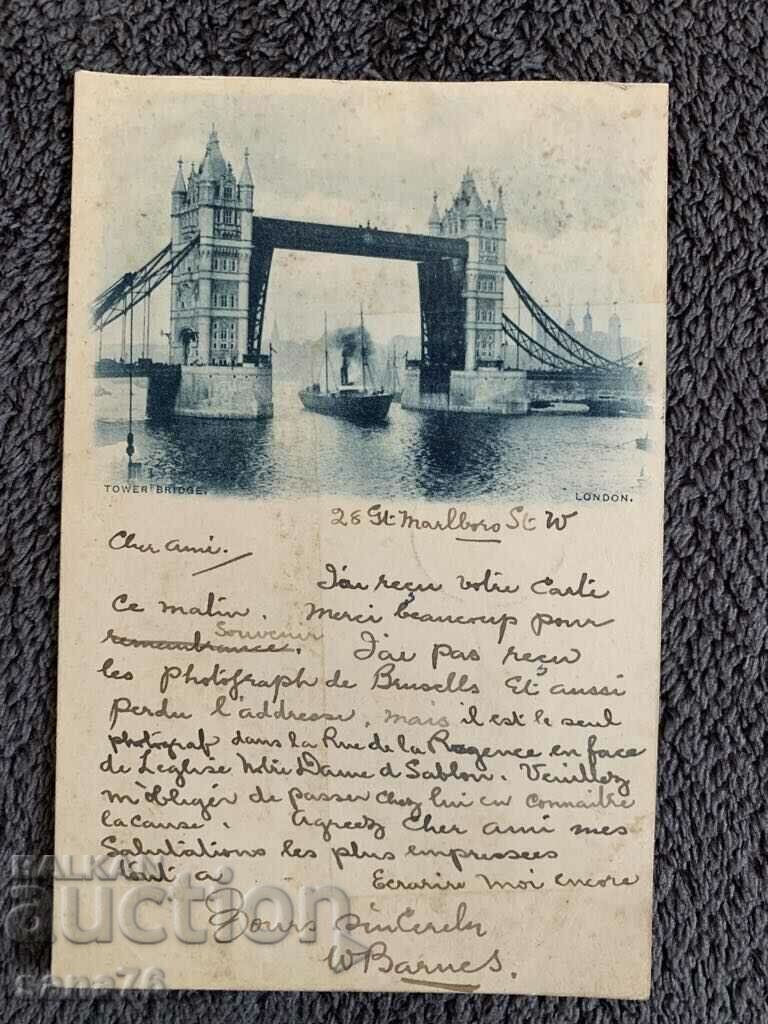 TOWER BRIDGE.
LONDON.
28 Gt Marlboro St W
Cher ami.
J'ai reçu votre Carte
Ce matin. Merci beaucoup pour
Souvenir
remembrance. J'ai pas reçu
les Photograph de Brusells Et aussi
perdu l'addresse, mais il est le seul
photograf dans la Rue de la Regence en face
de L'eglise Notre Dame d Sablon. Veuillez
m'obligér de passer chez lui en connaitre
la cause. Agreez Cher ami mes
Salutations les plus empressées
tout a Ecrarire moi encore
Yours Sincerely
W Barnes.
BALKAN
auction
sana76